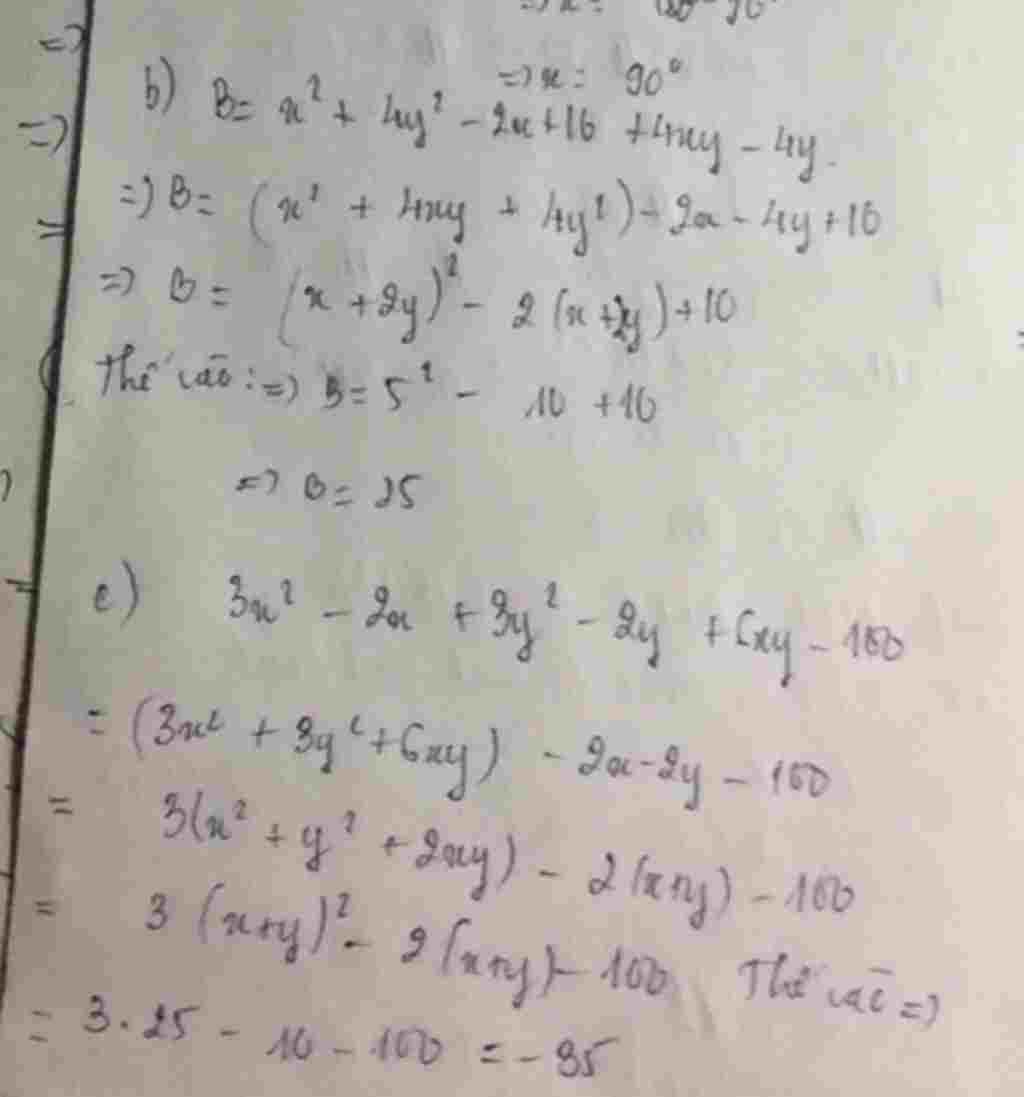 => x = 90°
b) B = x² + 4y² - 2x + 10 + 4xy - 4y.
=> B = (x² + 4xy + 4y²) - 2x - 4y + 10
=> B = (x + 2y)² - 2(x + 2y) + 10
Thế vào: => B = 5² - 10 + 10
=> B = 25
c) 3x² - 2x + 3y² - 2y + 6xy - 100
= (3x² + 3y² + 6xy) - 2x - 2y - 100
= 3(x² + y² + 2xy) - 2(x + y) - 100
= 3(x + y)² - 2(x + y) - 100 Thế vào =>
= 3.25 - 10 - 100 = -35